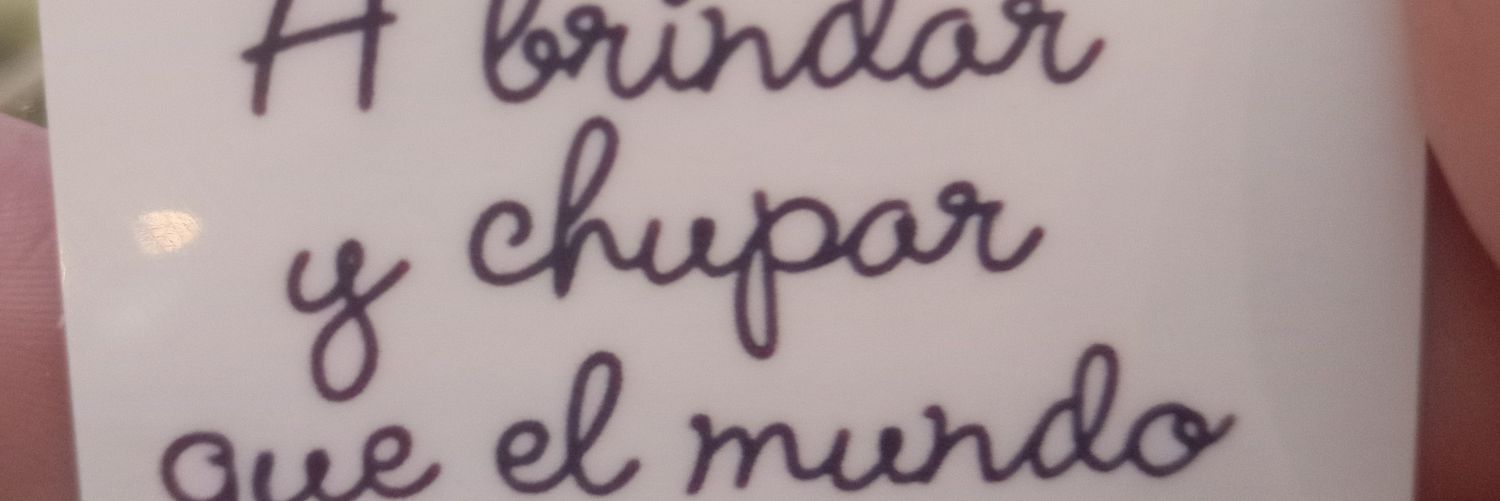 A brindar
y chupar
que el mundo